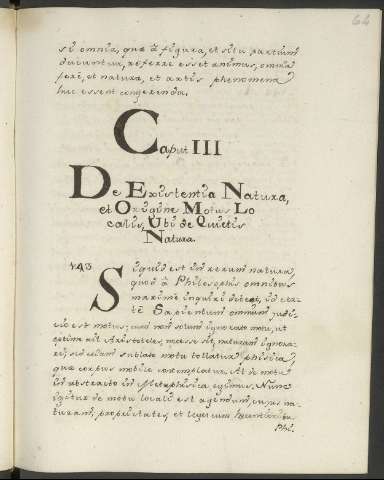 64
si omnia, quæ à figura, et situ partium
ducuntur, referre esset animus, omnia
feré, et natura, et artis phenomena
huc essent congerenda.
Caput III
De Existentia Natura,
et Origine Motus Lo
calis, Ubi de Quietis
Natura.
143 Si quid est in rerum natura,
quod à Philosophis omnibus
maximè inquiri debeat, id cer
tè Sapientum omnium judi
cio est motus; quod non solum ignorato motu, ut
optimè ait Aristoteles, necesse sit, naturam ignora
ri; sed etiam sublato motu tollatur physica,
quæ corpus mobile contemplatur. At de motu
in abstracto in Metaphysica egimus. Nunc
igitur de motu locali est agendum, cujus na
turam, proprietates, et legerum
Phi